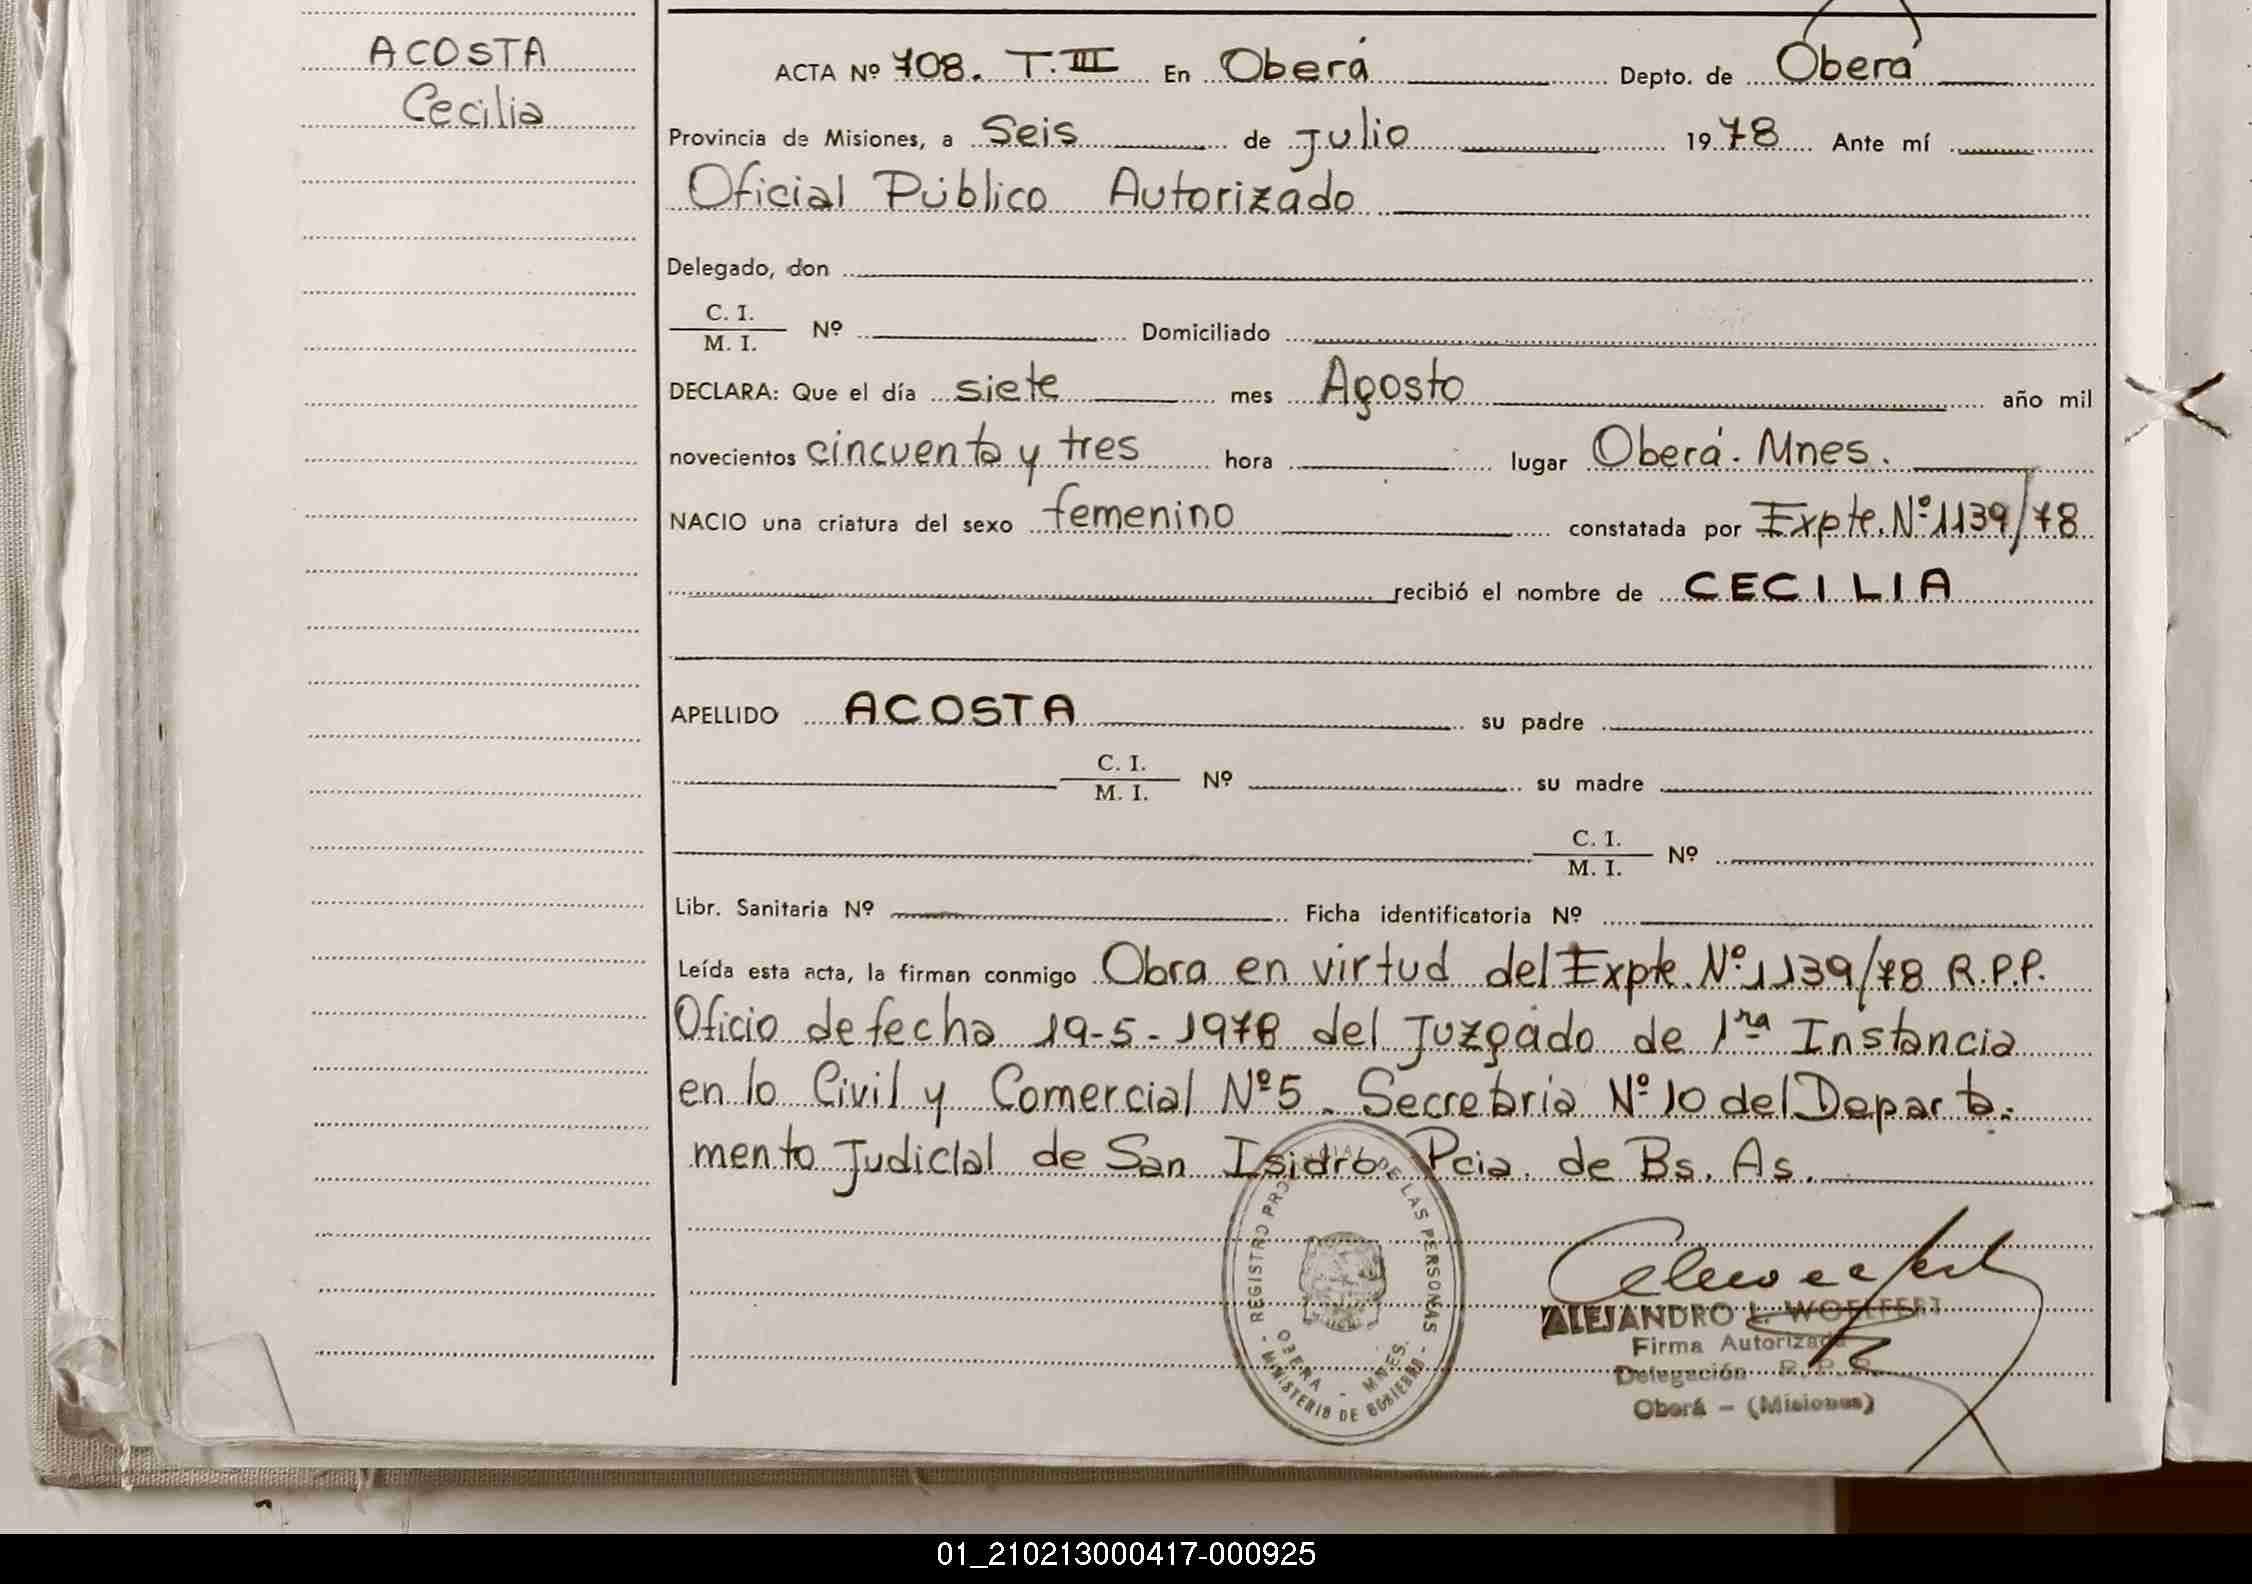 ACOSTA
Cecilia
ACTA Nº 708. T. III En Oberá Depto. de Oberá
Provincia de Misiones, a Seis de Julio 1978 Ante mí
Oficial Público Autorizado
Delegado, don
C. I.
M. I. Nº Domiciliado
DECLARA: Que el día siete mes Agosto año mil
novecientos cincuenta y tres hora lugar Oberá. Mnes.
NACIO una criatura del sexo femenino constatada por Expte. Nº 1139/78
recibió el nombre de CECILIA
APELLIDO ACOSTA su padre
C. I.
M. I. Nº su madre
C. I.
M. I. Nº
Libr. Sanitaria Nº Ficha identificatoria Nº
Leída esta acta, la firman conmigo Obra en virtud del Expte. Nº 1139/78 R.P.P.
Oficio de fecha 19-5-1978 del Juzgado de 1ra Instancia
en lo Civil y Comercial Nº 5. Secretaria Nº 10 del Departa-
mento Judicial de San Isidro. Pcia. de Bs. As.
REGISTRO PROVINCIAL DE LAS PERSONAS
OBERA - MNES.
MINISTERIO DE GOBIERNO
ALEJANDRO L. WOELFERT
Firma Autorizada
Delegación R.P.P.
Oberá - (Misiones)
01_210213000417-000925